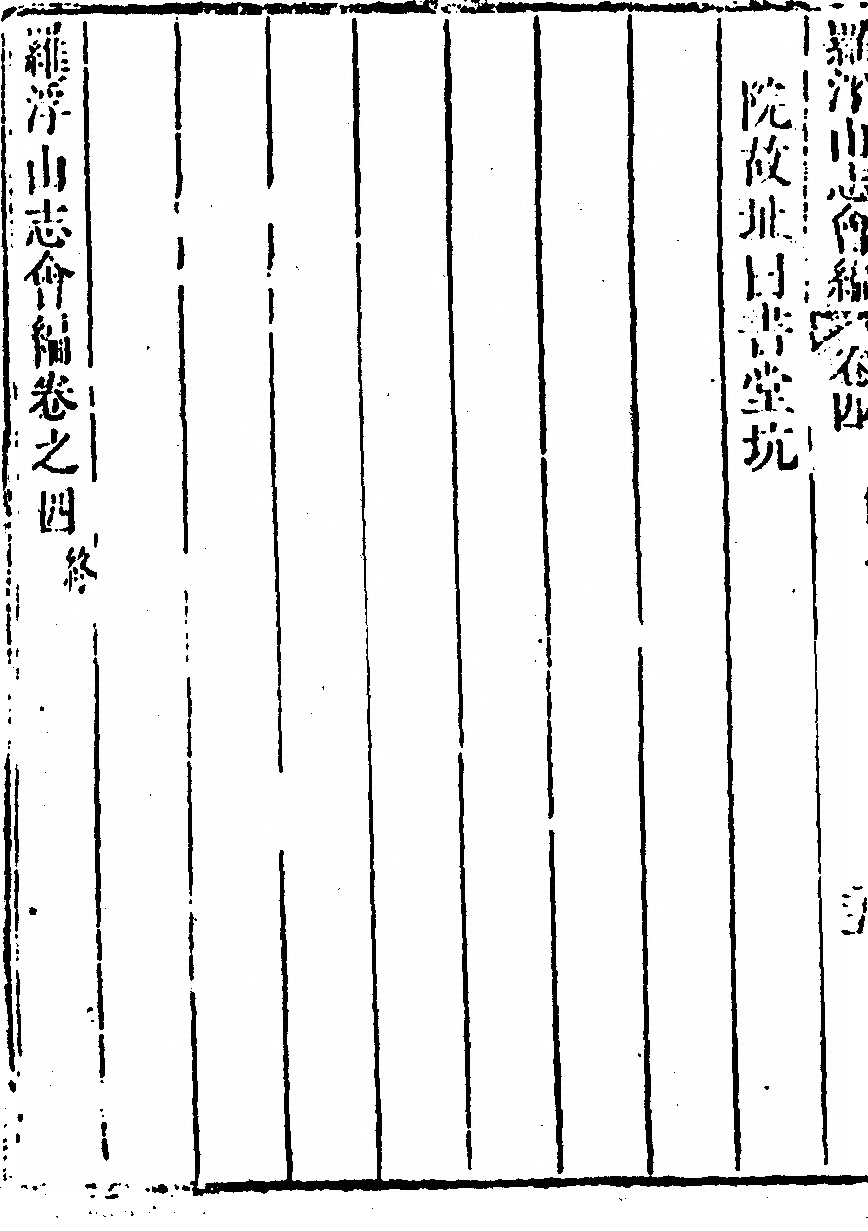 羅浮山志會編 卷四
院故址曰書堂坑
羅浮山志會編卷之四終